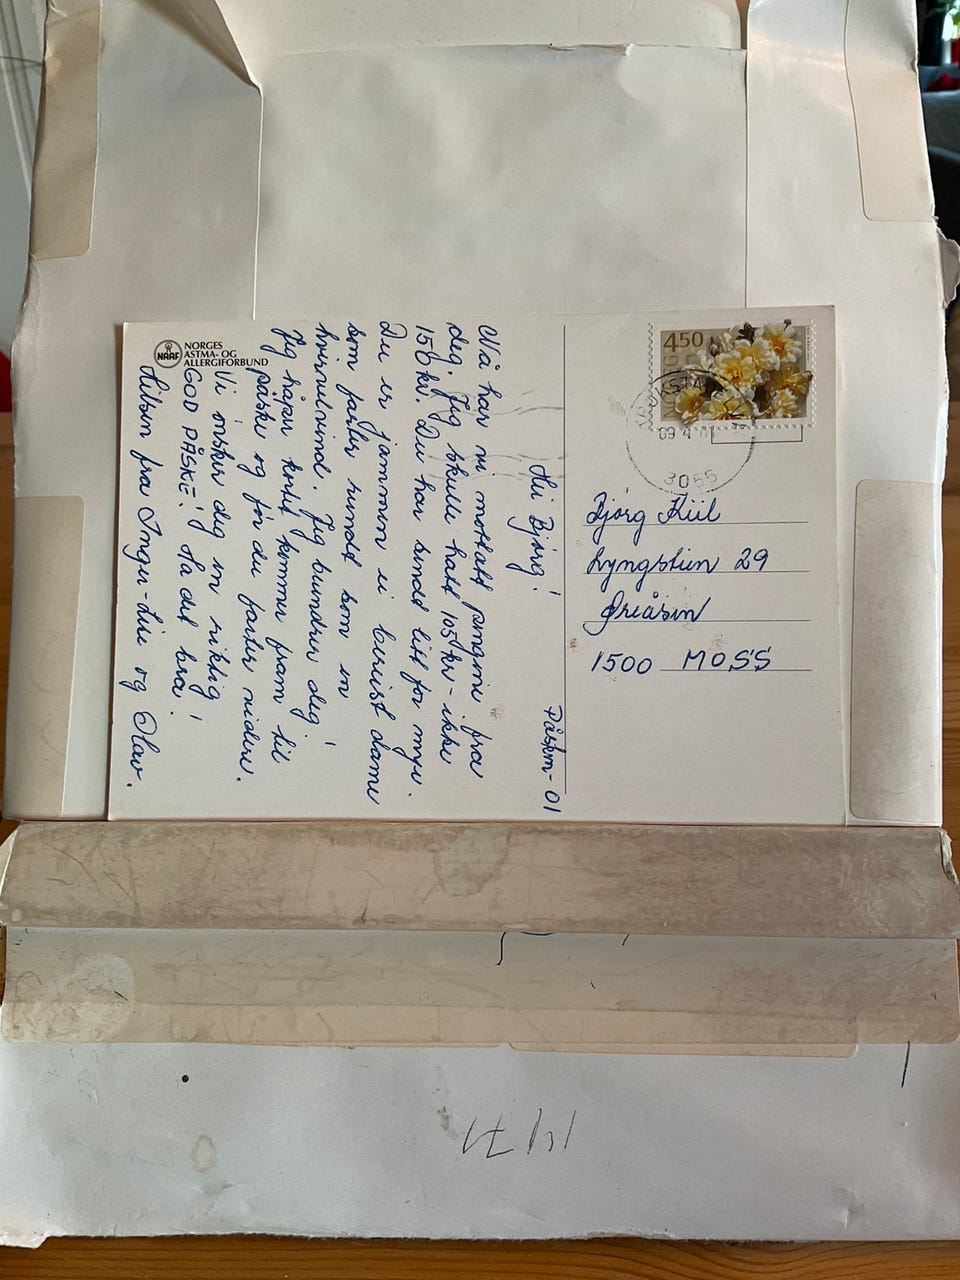 NAAF
NORGES
ASTMA- OG
ALLERGIFORBUND
Påsken-01
Hei Bjørg!
Nå har vi mottatt pengene fra
deg. Jeg skulle hatt 105 kr - ikke
150 kr. Du har sendt litt for mye.
Du er jammen ei bereist dame
som farter rundt som en
hvirvelvind. Jeg beundrer deg!
Jeg håper kortet kommer fram til
påske og før du farter videre.
Vi ønsker deg en riktig
GOD PÅSKE! Ha det bra!
Hilsen fra Inger-Lise og Olav.
4 50
09 4
3055
Bjørg Kiil
Lyngstien 29
Greåsen
1500 MOSS